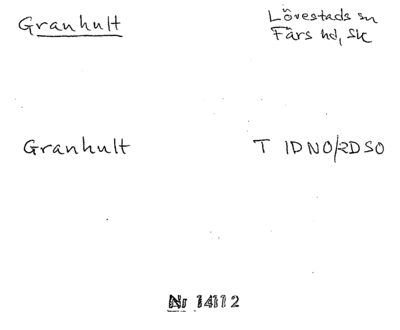 Granhult
Lövestads sn
Färs hd, Sk
Granhult
T 1DNO/2DSO
Nr